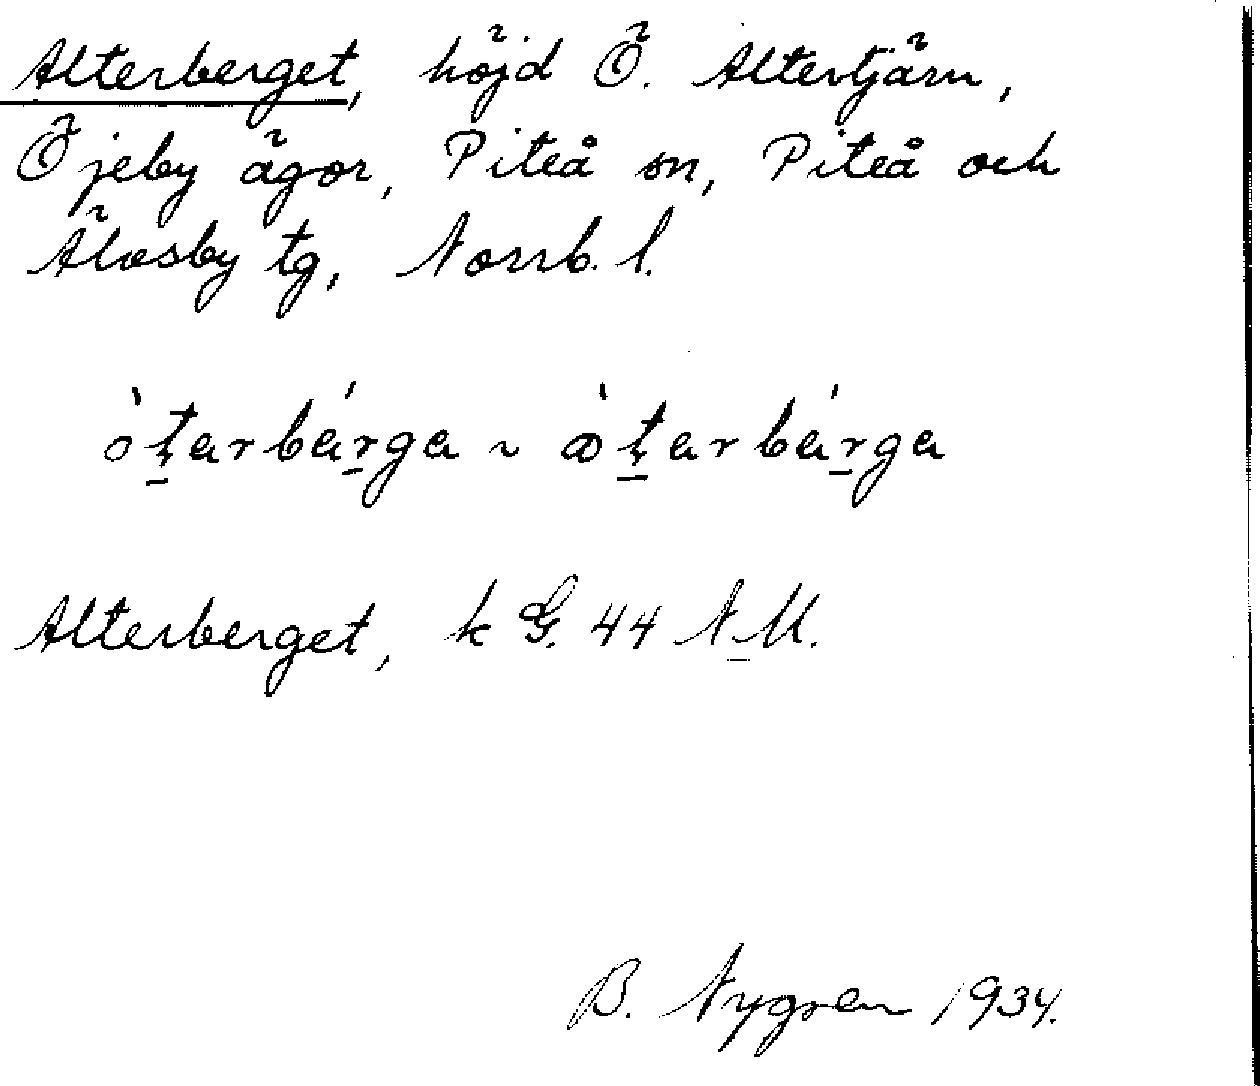 Alterberget, höjd Ö. Altertjärn,
Öjeby ägor, Piteå sn, Piteå och
Älvsby tg, Norrb. l.
òt̠arbárga ~ òt̠arbár̠ga
Alterberget, k G. 44 N M.
B. Nygren 1934.